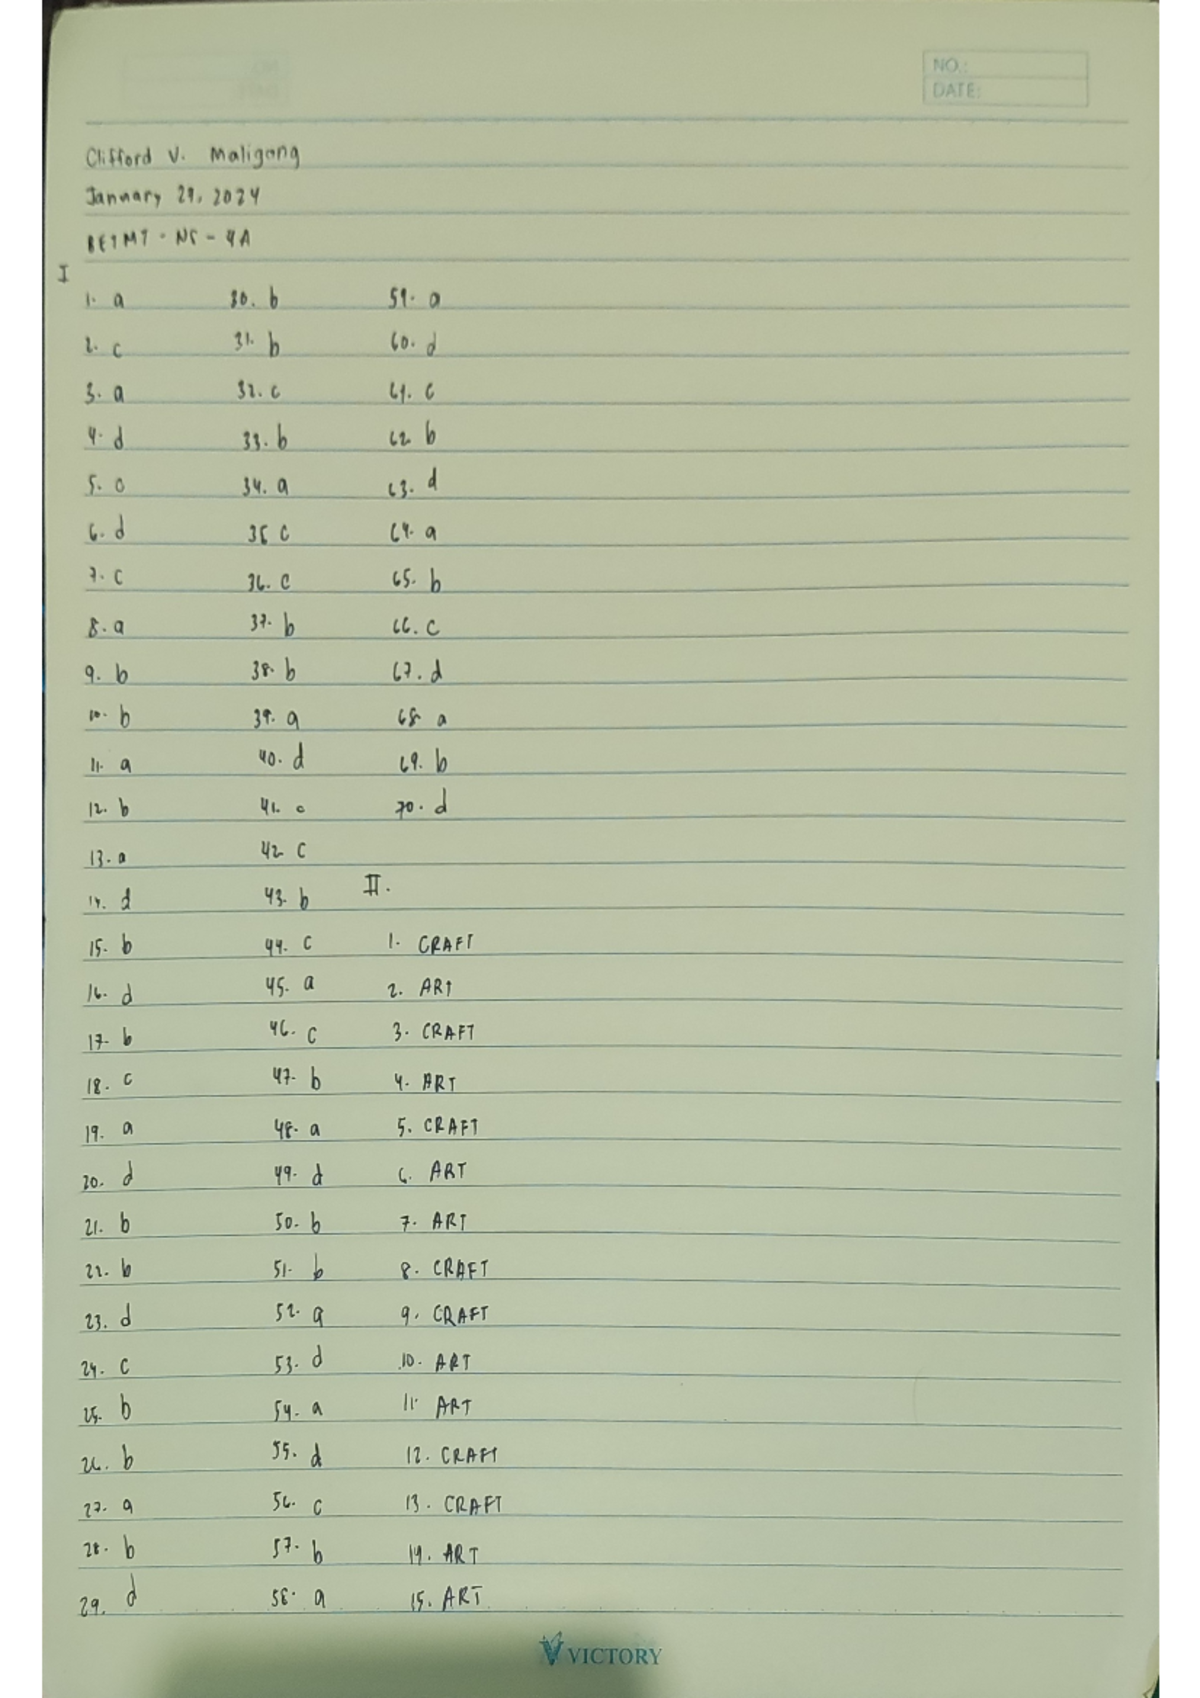 NO.:
DATE:
Clifford V. Maligang
January 29, 2024
BETMT - NS - 4A
I
1. a
2. c
3. a
4. d
5. c
6. d
7. c
8. a
9. b
10. b
11. a
12. b
13. a
14. d
15. b
16. d
17. b
18. c
19. a
20. d
21. b
22. b
23. d
24. c
25. b
26. b
27. a
28. b
29. d
30. b
31. b
32. c
33. b
34. a
35 c
36. c
37. b
38. b
39. a
40. d
41. c
42 c
43. b
44. c
45. a
46. c
47. b
48. a
49. d
50. b
51. b
52. a
53. d
54. a
55. d
56. c
57. b
58. a
59. a
60. d
61. c
62 b
63. d
64. a
65. b
66. c
67. d
68 a
69. b
70. d
II.
1. CRAFT
2. ART
3. CRAFT
4. ART
5. CRAFT
6. ART
7. ART
8. CRAFT
9. CRAFT
10. ART
11. ART
12. CRAFT
13. CRAFT
14. ART
15. ART
VICTORY